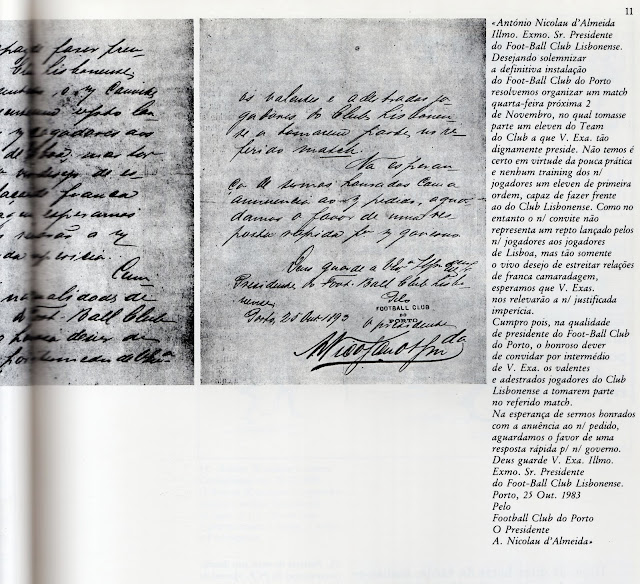 11
parte fazer fren
Club
franca
esperarmos
Cum
qualidade de
Foot-Ball Club
dever de
os valentes e adestrados jo
gadores do Club Lisbonen
se a tomarem parte no re
ferido match.
Na esperan
ça de sermos honrados com a
annuencia ao n/ pedido, aguar
damos o favor de uma res
posta rapida p/ n/ governo
Deus guarde a V. Exa. Illmo. Exmo. Sr.
Presidente do Foot-Ball Club Lisbo
nense
Pelo
FOOTBALL CLUB
DO
PORTO
Porto, 25 Out 1893
O presidente
«António Nicolau d'Almeida
Illmo. Exmo. Sr. Presidente
do Foot-Ball Club Lisbonense.
Desejando solemnizar
a definitiva instalação
do Foot-Ball Club do Porto
resolvemos organizar um match
quarta-feira próxima 2
de Novembro, no qual tomasse
parte um eleven do Team
do Club a que V. Exa. tão
dignamente preside. Não temos é
certo em virtude da pouca prática
e nenhum training dos n/
jogadores um eleven de primeira
ordem, capaz de fazer frente
ao do Club Lisbonense. Como no
entanto o n/ convite não
representa um repto lançado pelos
n/ jogadores aos jogadores
de Lisboa, mas tão somente
o vivo desejo de estreitar relações
de franca camaradagem,
esperamos que V. Exas.
nos relevarão a n/ justificada
imperícia.
Cumpro pois, na qualidade
de presidente do Foot-Ball Club
do Porto, o honroso dever
de convidar por intermédio
de V. Exa. os valentes
e adestrados jogadores do Club
Lisbonense a tomarem parte
no referido match.
Na esperança de sermos honrados
com a anuência ao n/ pedido,
aguardamos o favor de uma
resposta rápida p/ n/ governo.
Deus guarde V. Exa. Illmo.
Exmo. Sr. Presidente
do Foot-Ball Club Lisbonense.
Porto, 25 Out. 1983
Pelo
Football Club do Porto
O Presidente
A. Nicolau d'Almeida»